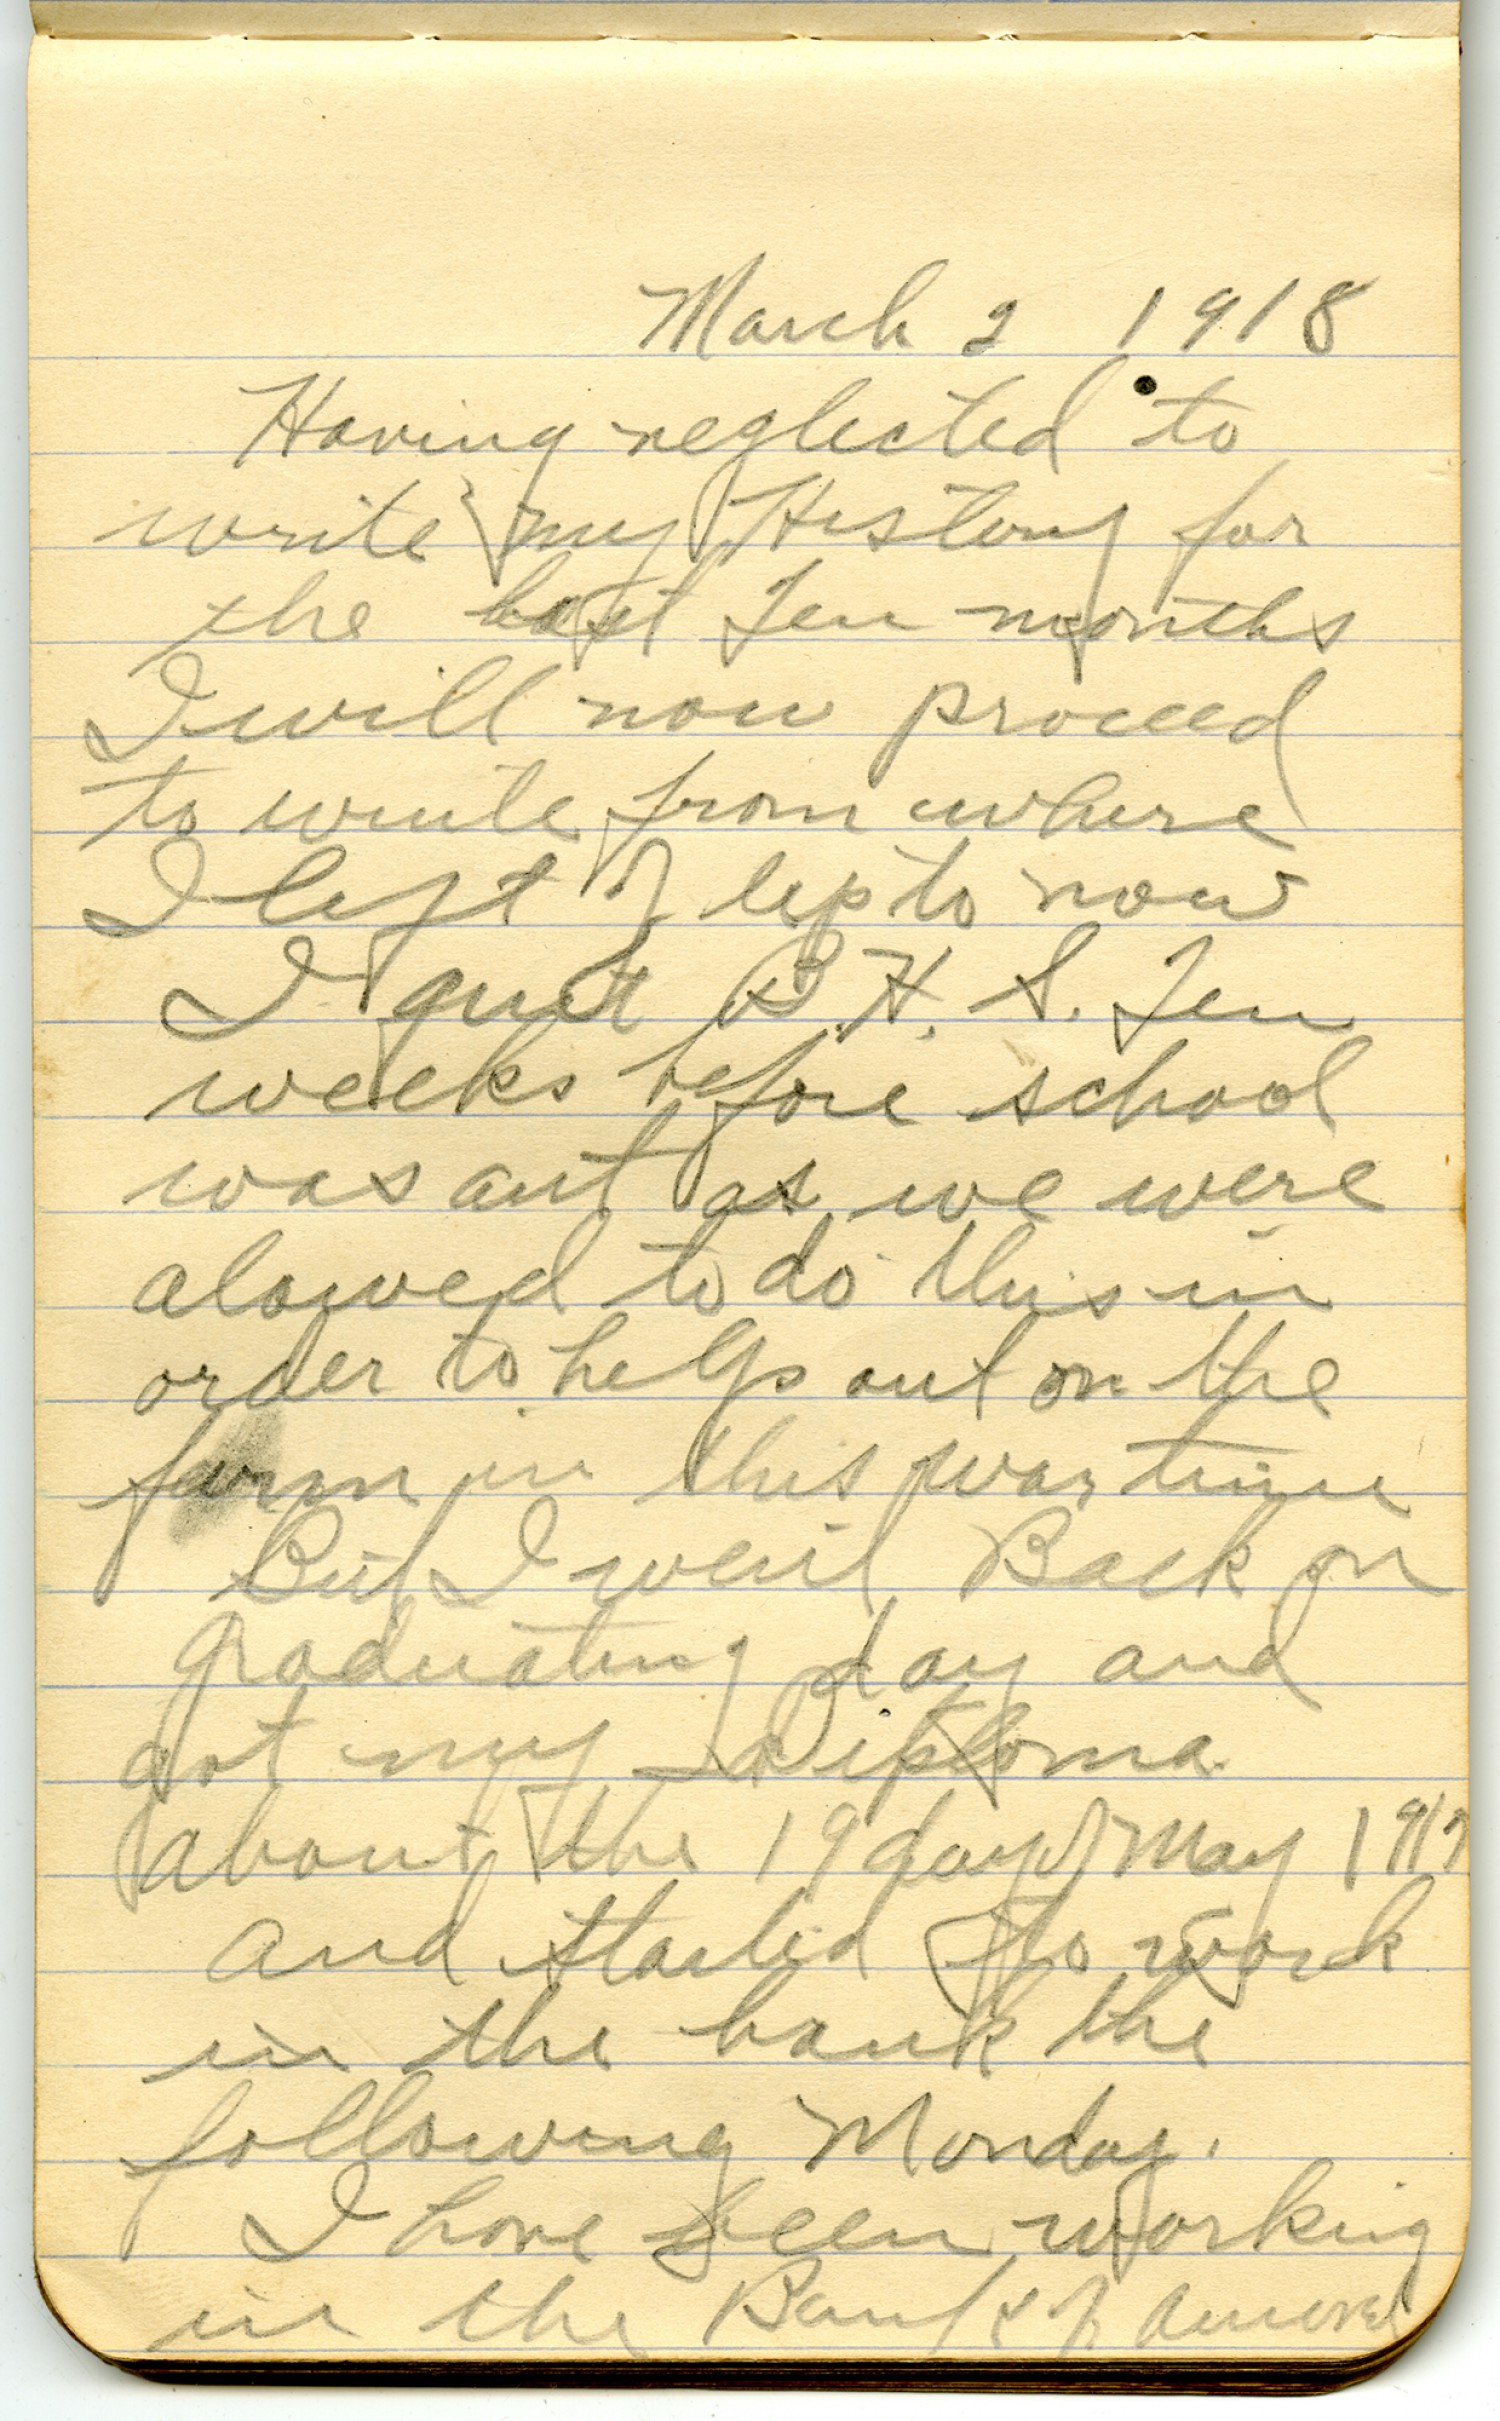 March 2 1918
Having neglected to
write my History for
the last Ten months
I will now proceed
to write from where
I left of up to now
I quit B. H. S. Ten
weeks before school
was out as we were
alowed to do this in
order to help out on the
farm in this war time
But I went Back on
graduating day and
got my Diploma
about the 19 day of May 1917
and started to work
in the bank the
following Monday.
I have been working
in the Bank of